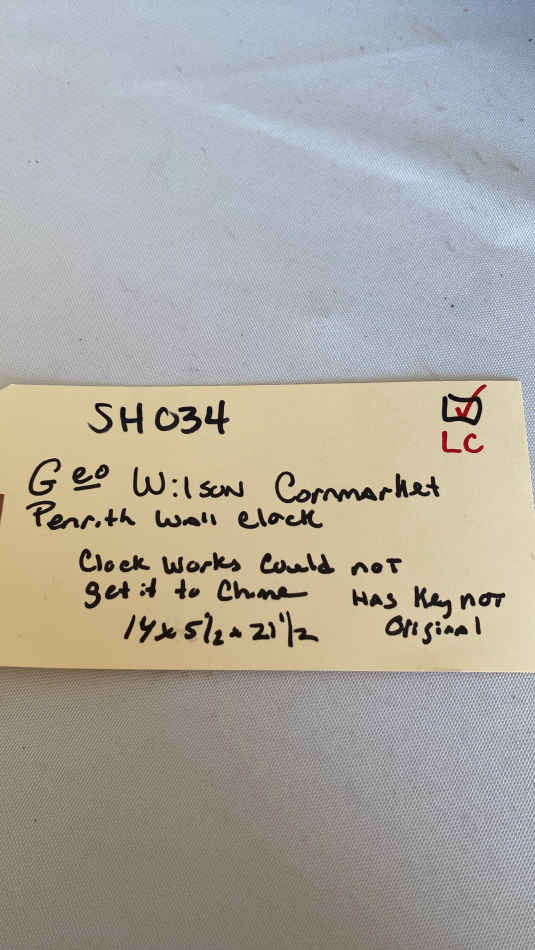 SH034
LC
Geo Wilson Cornmarket
Penrith Wall Clock
Clock Works Could not
get it to Chime Has Key not
Original
14 x 5 1/2 x 21 1/2